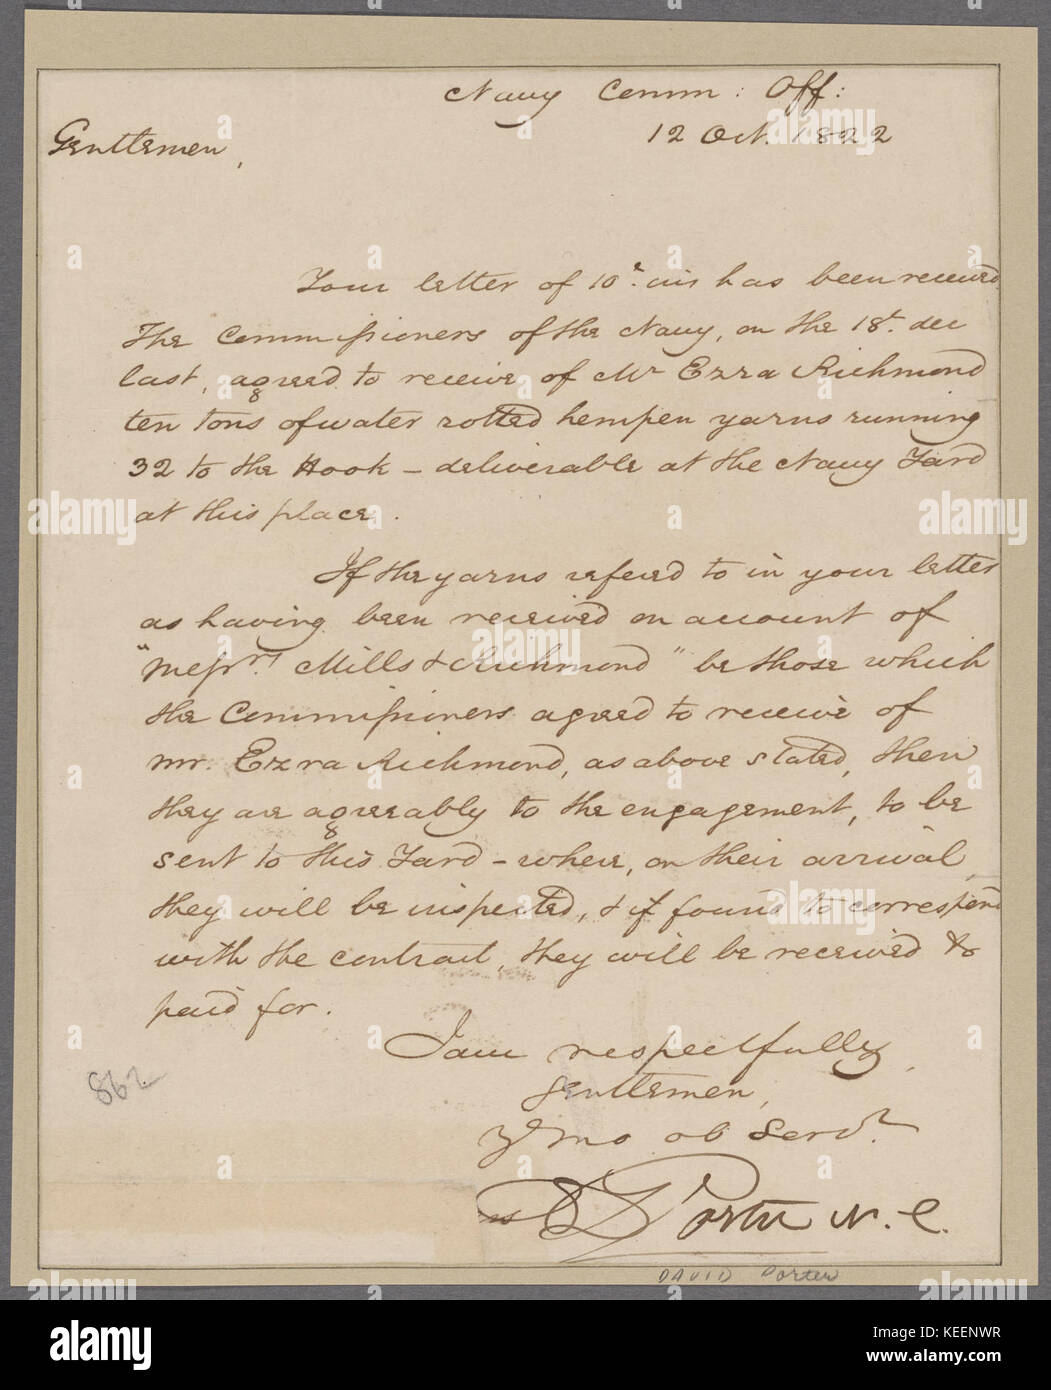 Navy Comm: Off:
12 Oct. 1822
Gentlemen,
Your letter of 10th. ins has been received.
The Commissioners of the Navy, on the 18t. dec
last, agreed to receive of Mr Ezra Richmond
ten tons of water rotted hempen yarns running
32 to the Hook – deliverable at the Navy Yard
at this place.
If the yarns refered to in your letter
as having been received on account of
"Messrs. Mills & Richmond" be those which
the Commissioners agreed to receive of
mr. Ezra Richmond, as above stated, then
they are agreeably to the engagement, to be
sent to this Yard – where, on their arrival,
they will be inspected, & if found to correspond
with the contract, they will be received &
paid for.
I am respectfully,
Gentlemen,
Yr mo ob Servt.
D Porter N. C.
862
DAVID Porter
alamy
Image ID: KEENWR
www.alamy.com